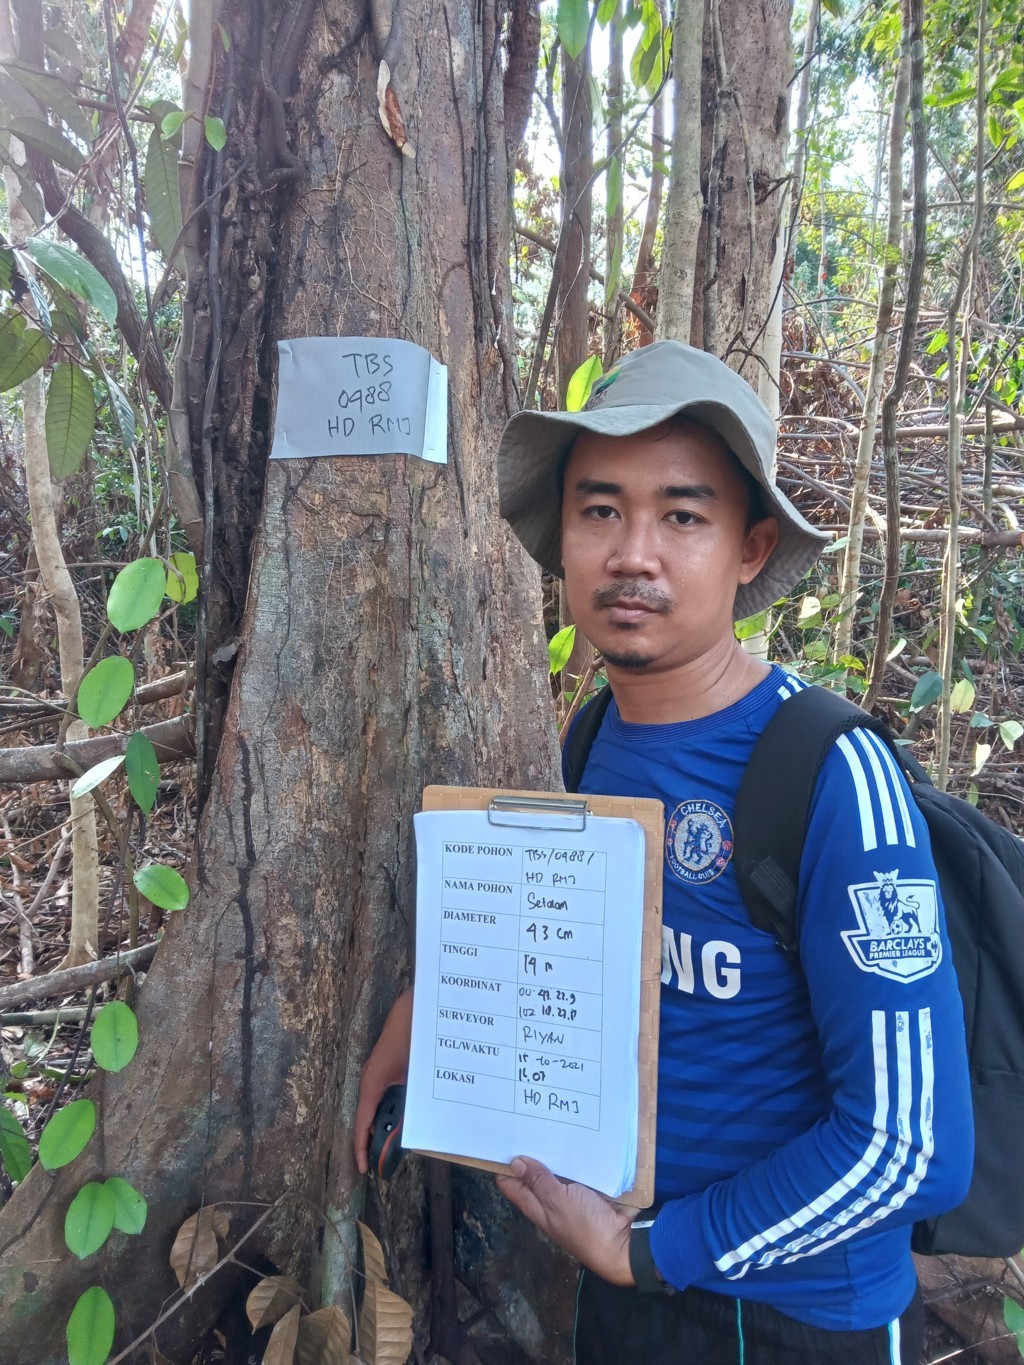 TBS
0488
HD RMJ
KODE POHON TBS/0488/
HD RMJ
NAMA POHON Setaam
DIAMETER 43 cm
TINGGI 19 m
KOORDINAT
SURVEYOR RIYAN
TGL/WAKTU 15-10-2021
LOKASI HD RMJ
CHELSEA
FOOTBALL CLUB
NG
BARCLAYS
PREMIER LEAGUE